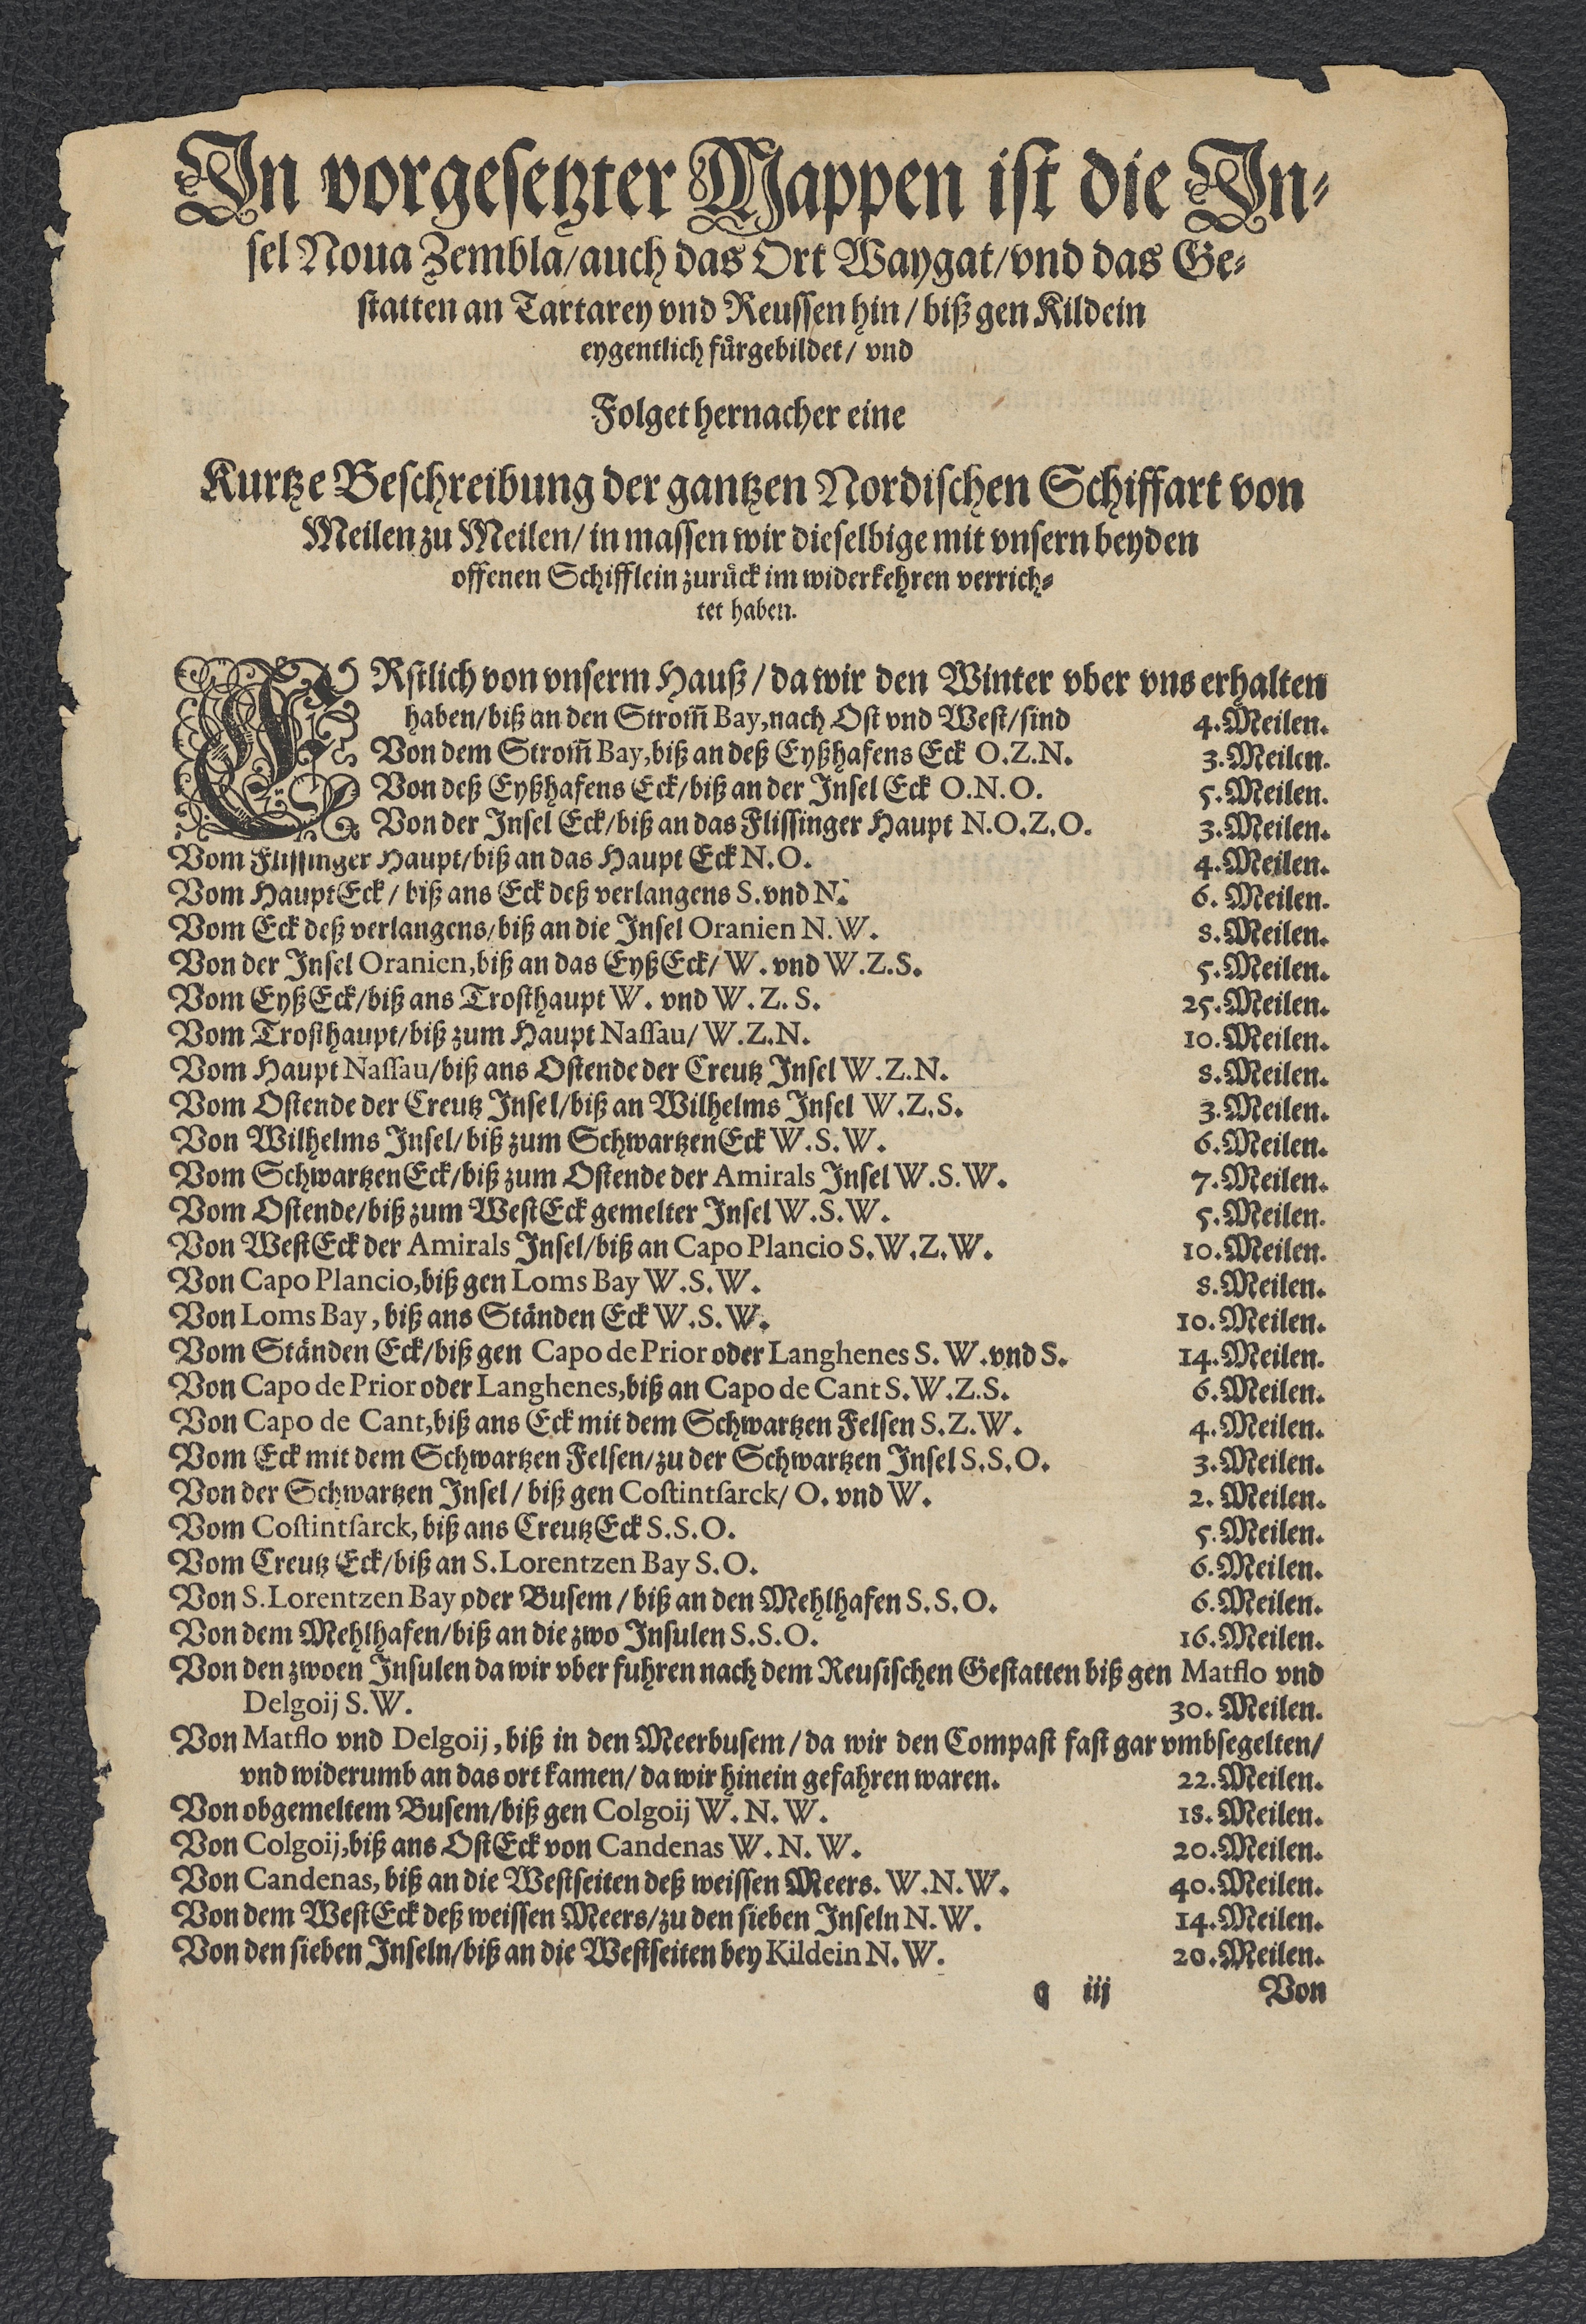 In vorgesetzter Mappen ist die In-
sel Noua Zembla/auch das Ort Waygat/vnd das Ge-
statten an Tartarey vnd Reussen hin/ biß gen Kildein
eygentlich fürgebildet/ vnd
Folget hernacher eine
Kurtze Beschreibung der gantzen Nordischen Schiffart von
Meilen zu Meilen/ in massen wir dieselbige mit vnsern beyden
offenen Schifflein zurück im widerkehren verrich-
tet haben.
ERstlich von vnserm Hauß/ da wir den Winter vber vns erhalten
haben/biß an den Strom̃ Bay, nach Ost vnd West/sind 4. Meilen.
Von dem Strom̃ Bay, biß an deß Eyßhafens Eck O.Z.N. 3. Meilen.
Von deß Eyßhafens Eck/biß an der Insel Eck O.N.O. 5. Meilen.
Von der Insel Eck/biß an das Flissinger Haupt N.O.Z.O. 3. Meilen.
Vom Flissinger Haupt/biß an das Haupt Eck N.O. 4. Meilen.
Vom Haupt Eck/ biß ans Eck deß verlangens S. vnd N. 6. Meilen.
Vom Eck deß verlangens/biß an die Insel Oranien N.W. 8. Meilen.
Von der Insel Oranien, biß an das Eyß Eck/ W. vnd W.Z.S. 5. Meilen.
Vom Eyß Eck/biß ans Trosthaupt W. vnd W.Z.S. 25. Meilen.
Vom Trosthaupt/biß zum Haupt Nassau/ W.Z.N. 10. Meilen.
Vom Haupt Nassau/biß ans Ostende der Creutz Insel W.Z.N. 8. Meilen.
Vom Ostende der Creutz Insel/biß an Wilhelms Insel W.Z.S. 3. Meilen.
Von Wilhelms Insel/biß zum Schwartzen Eck W.S.W. 6. Meilen.
Vom Schwartzen Eck/biß zum Ostende der Amirals Insel W.S.W. 7. Meilen.
Vom Ostende/biß zum West Eck gemelter Insel W.S.W. 5. Meilen.
Von West Eck der Amirals Insel/biß an Capo Plancio S.W.Z.W. 10. Meilen.
Von Capo Plancio, biß gen Loms Bay W.S.W. 8. Meilen.
Von Loms Bay, biß ans Ständen Eck W.S.W. 10. Meilen.
Vom Ständen Eck/biß gen Capo de Prior oder Langhenes S.W. vnd S. 14. Meilen.
Von Capo de Prior oder Langhenes, biß an Capo de Cant S.W.Z.S. 6. Meilen.
Von Capo de Cant, biß ans Eck mit dem Schwartzen Felsen S.Z.W. 4. Meilen.
Vom Eck mit dem Schwartzen Felsen/zu der Schwartzen Insel S.S.O. 3. Meilen.
Von der Schwartzen Insel/ biß gen Costintsarck/ O. vnd W. 2. Meilen.
Vom Costintsarck, biß ans Creutz Eck S.S.O. 5. Meilen.
Vom Creutz Eck/biß an S. Lorentzen Bay S.O. 6. Meilen.
Von S. Lorentzen Bay oder Busem/ biß an den Mehlhafen S.S.O. 6. Meilen.
Von dem Mehlhafen/biß an die zwo Insulen S.S.O. 16. Meilen.
Von den zwoen Insulen da wir vber fuhren nach dem Reusischen Gestatten biß gen Matflo vnd
Delgoij S.W. 30. Meilen.
Von Matflo vnd Delgoij, biß in den Meerbusem/ da wir den Compast fast gar vmbsegelten/
vnd widerumb an das ort kamen/ da wir hinein gefahren waren. 22. Meilen.
Von obgemeltem Busem/biß gen Colgoij W.N.W. 18. Meilen.
Von Colgoij, biß ans Ost Eck von Candenas W.N.W. 20. Meilen.
Von Candenas, biß an die Westseiten deß weissen Meers. W.N.W. 40. Meilen.
Von dem West Eck deß weissen Meers/zu den sieben Inseln N.W. 14. Meilen.
Von den sieben Inseln/biß an die Westseiten bey Kildein N.W. 20. Meilen.
q iij Von